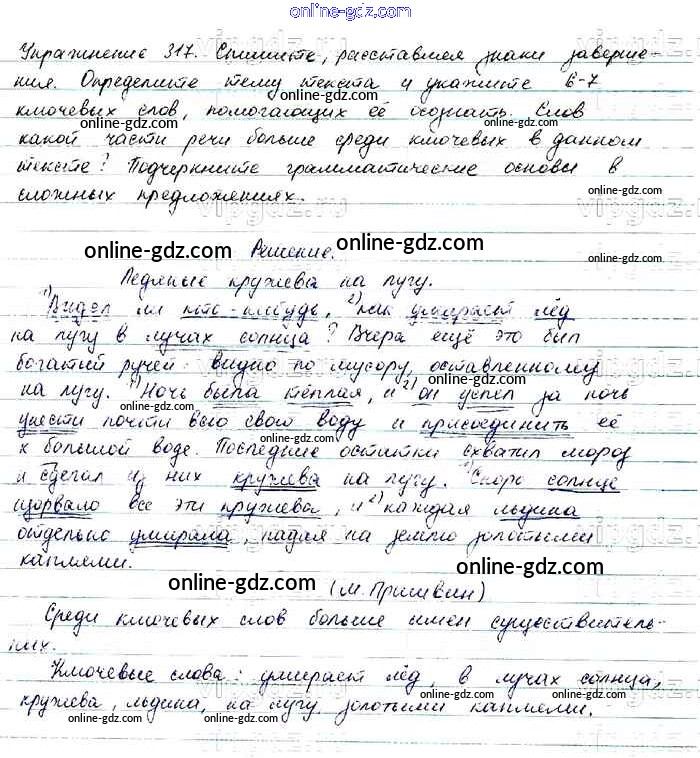 online-gdz.com
Упражнение 317. Спишите, расставляя знаки заверше-
ния. Определите тему текста и укажите 6-7
ключевых слов, помогающих её осознать. Слов
какой части речи больше среди ключевых в данном
тексте? Подчеркните грамматические основы в
сложных предложениях.
Решение.
Ледяные кружева на лугу.
1) Видел ли кто-нибудь, 2) как умирает лёд
на лугу в лучах солнца? Вчера ещё это был
богатый ручей: видно по мусору, оставленному
на лугу. 1) Ночь была тёплая, и 2) он успел за ночь
унести почти всю свою воду и присоединить её
к большой воде. Последние остатки схватил мороз
и сделал из них кружева на лугу. 1) Скоро солнце
изорвало все эти кружева, и 2) каждая льдина
отдельно умирала, падая на землю золотыми
каплями.
(М. Пришвин)
Среди ключевых слов больше имен существитель-
ных.
Ключевые слова: умирает лёд, в лучах солнца,
кружева, льдина, на лугу, золотыми каплями.